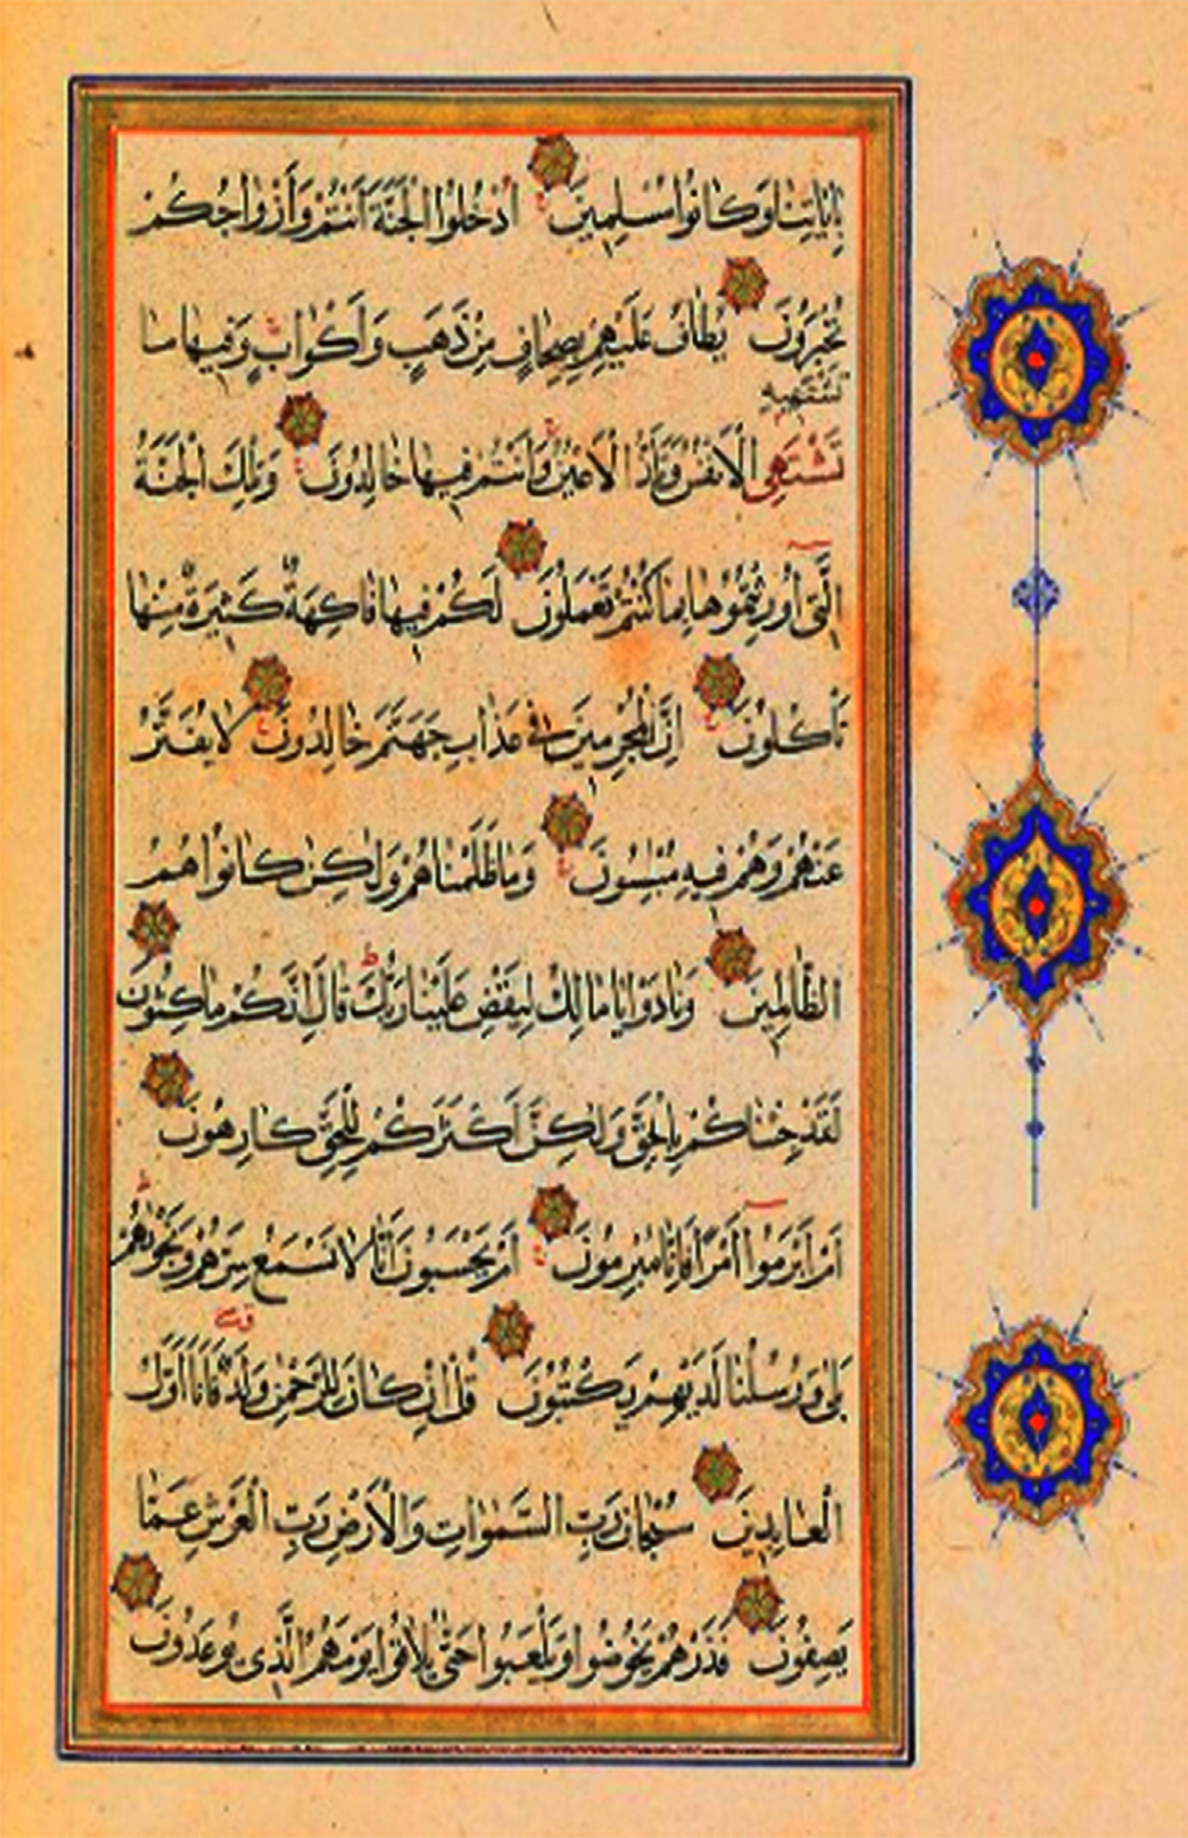 بِاٰيَاتِنَا وَكَانُوا مُسْلِمِينَ اُدْخُلُوا الْجَنَّةَ اَنْتُمْ وَاَزْوَاجُكُمْ
تُحْبَرُونَ يُطَافُ عَلَيْهِمْ بِصِحَافٍ مِنْ ذَهَبٍ وَاَكْوَابٍ وَفِيهَا مَا
تَشْتَهِيهِ
تَشْتَهِى الْاَنْفُسُ وَتَلَذُّ الْاَعْيُنُ وَاَنْتُمْ فِيهَا خَالِدُونَ وَتِلْكَ الْجَنَّةُ
الَّتِى اُورِثْتُمُوهَا بِمَا كُنْتُمْ تَعْمَلُونَ لَكُمْ فِيهَا فَاكِهَةٌ كَثِيرَةٌ مِنْهَا
تَأْكُلُونَ اِنَّ الْمُجْرِمِينَ فِى عَذَابِ جَهَنَّمَ خَالِدُونَ لَا يُفَتَّرُ
عَنْهُمْ وَهُمْ فِيهِ مُبْلِسُونَ وَمَا ظَلَمْنَاهُمْ وَلٰكِنْ كَانُوا هُمُ
الظَّالِمِينَ وَنَادَوْا يَا مَالِكُ لِيَقْضِ عَلَيْنَا رَبُّكَ قَالَ اِنَّكُمْ مَاكِثُونَ
لَقَدْ جِئْنَاكُمْ بِالْحَقِّ وَلٰكِنَّ اَكْثَرَكُمْ لِلْحَقِّ كَارِهُونَ
اَمْ اَبْرَمُوا اَمْرًا فَاِنَّا مُبْرِمُونَ اَمْ يَحْسَبُونَ اَنَّا لَا نَسْمَعُ سِرَّهُمْ وَنَجْوٰيهُمْ
بَلٰى وَرُسُلُنَا لَدَيْهِمْ يَكْتُبُونَ قُلْ اِنْ كَانَ لِلرَّحْمٰنِ وَلَدٌ فَاَنَا اَوَّلُ
الْعَابِدِينَ سُبْحَانَ رَبِّ السَّمٰوَاتِ وَالْاَرْضِ رَبِّ الْعَرْشِ عَمَّا
يَصِفُونَ فَذَرْهُمْ يَخُوضُوا وَيَلْعَبُوا حَتّٰى يُلَاقُوا يَوْمَهُمُ الَّذِى يُوعَدُونَ